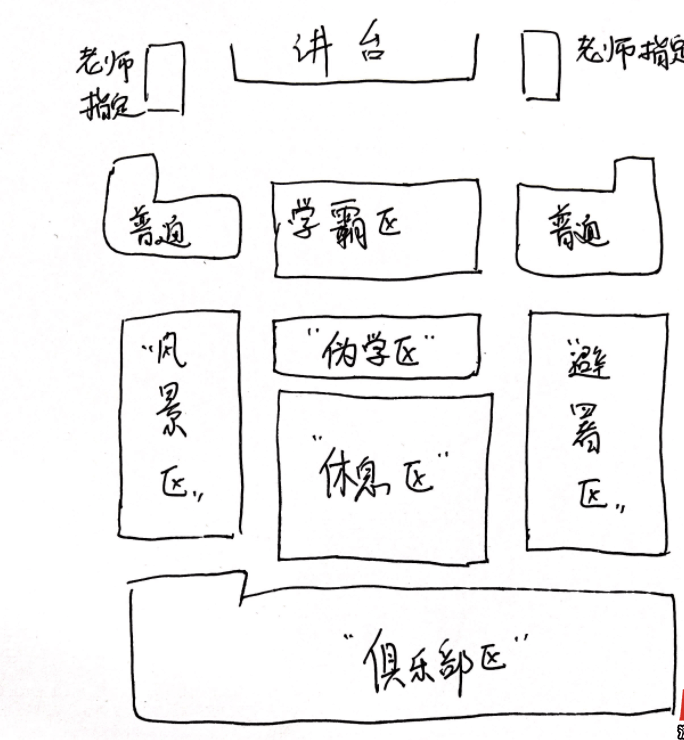 讲台
老师
指定
老师指定
普通
学霸区
普通
"风景区"
"伪学区"
"避暑区"
"休息区"
"俱乐部区"